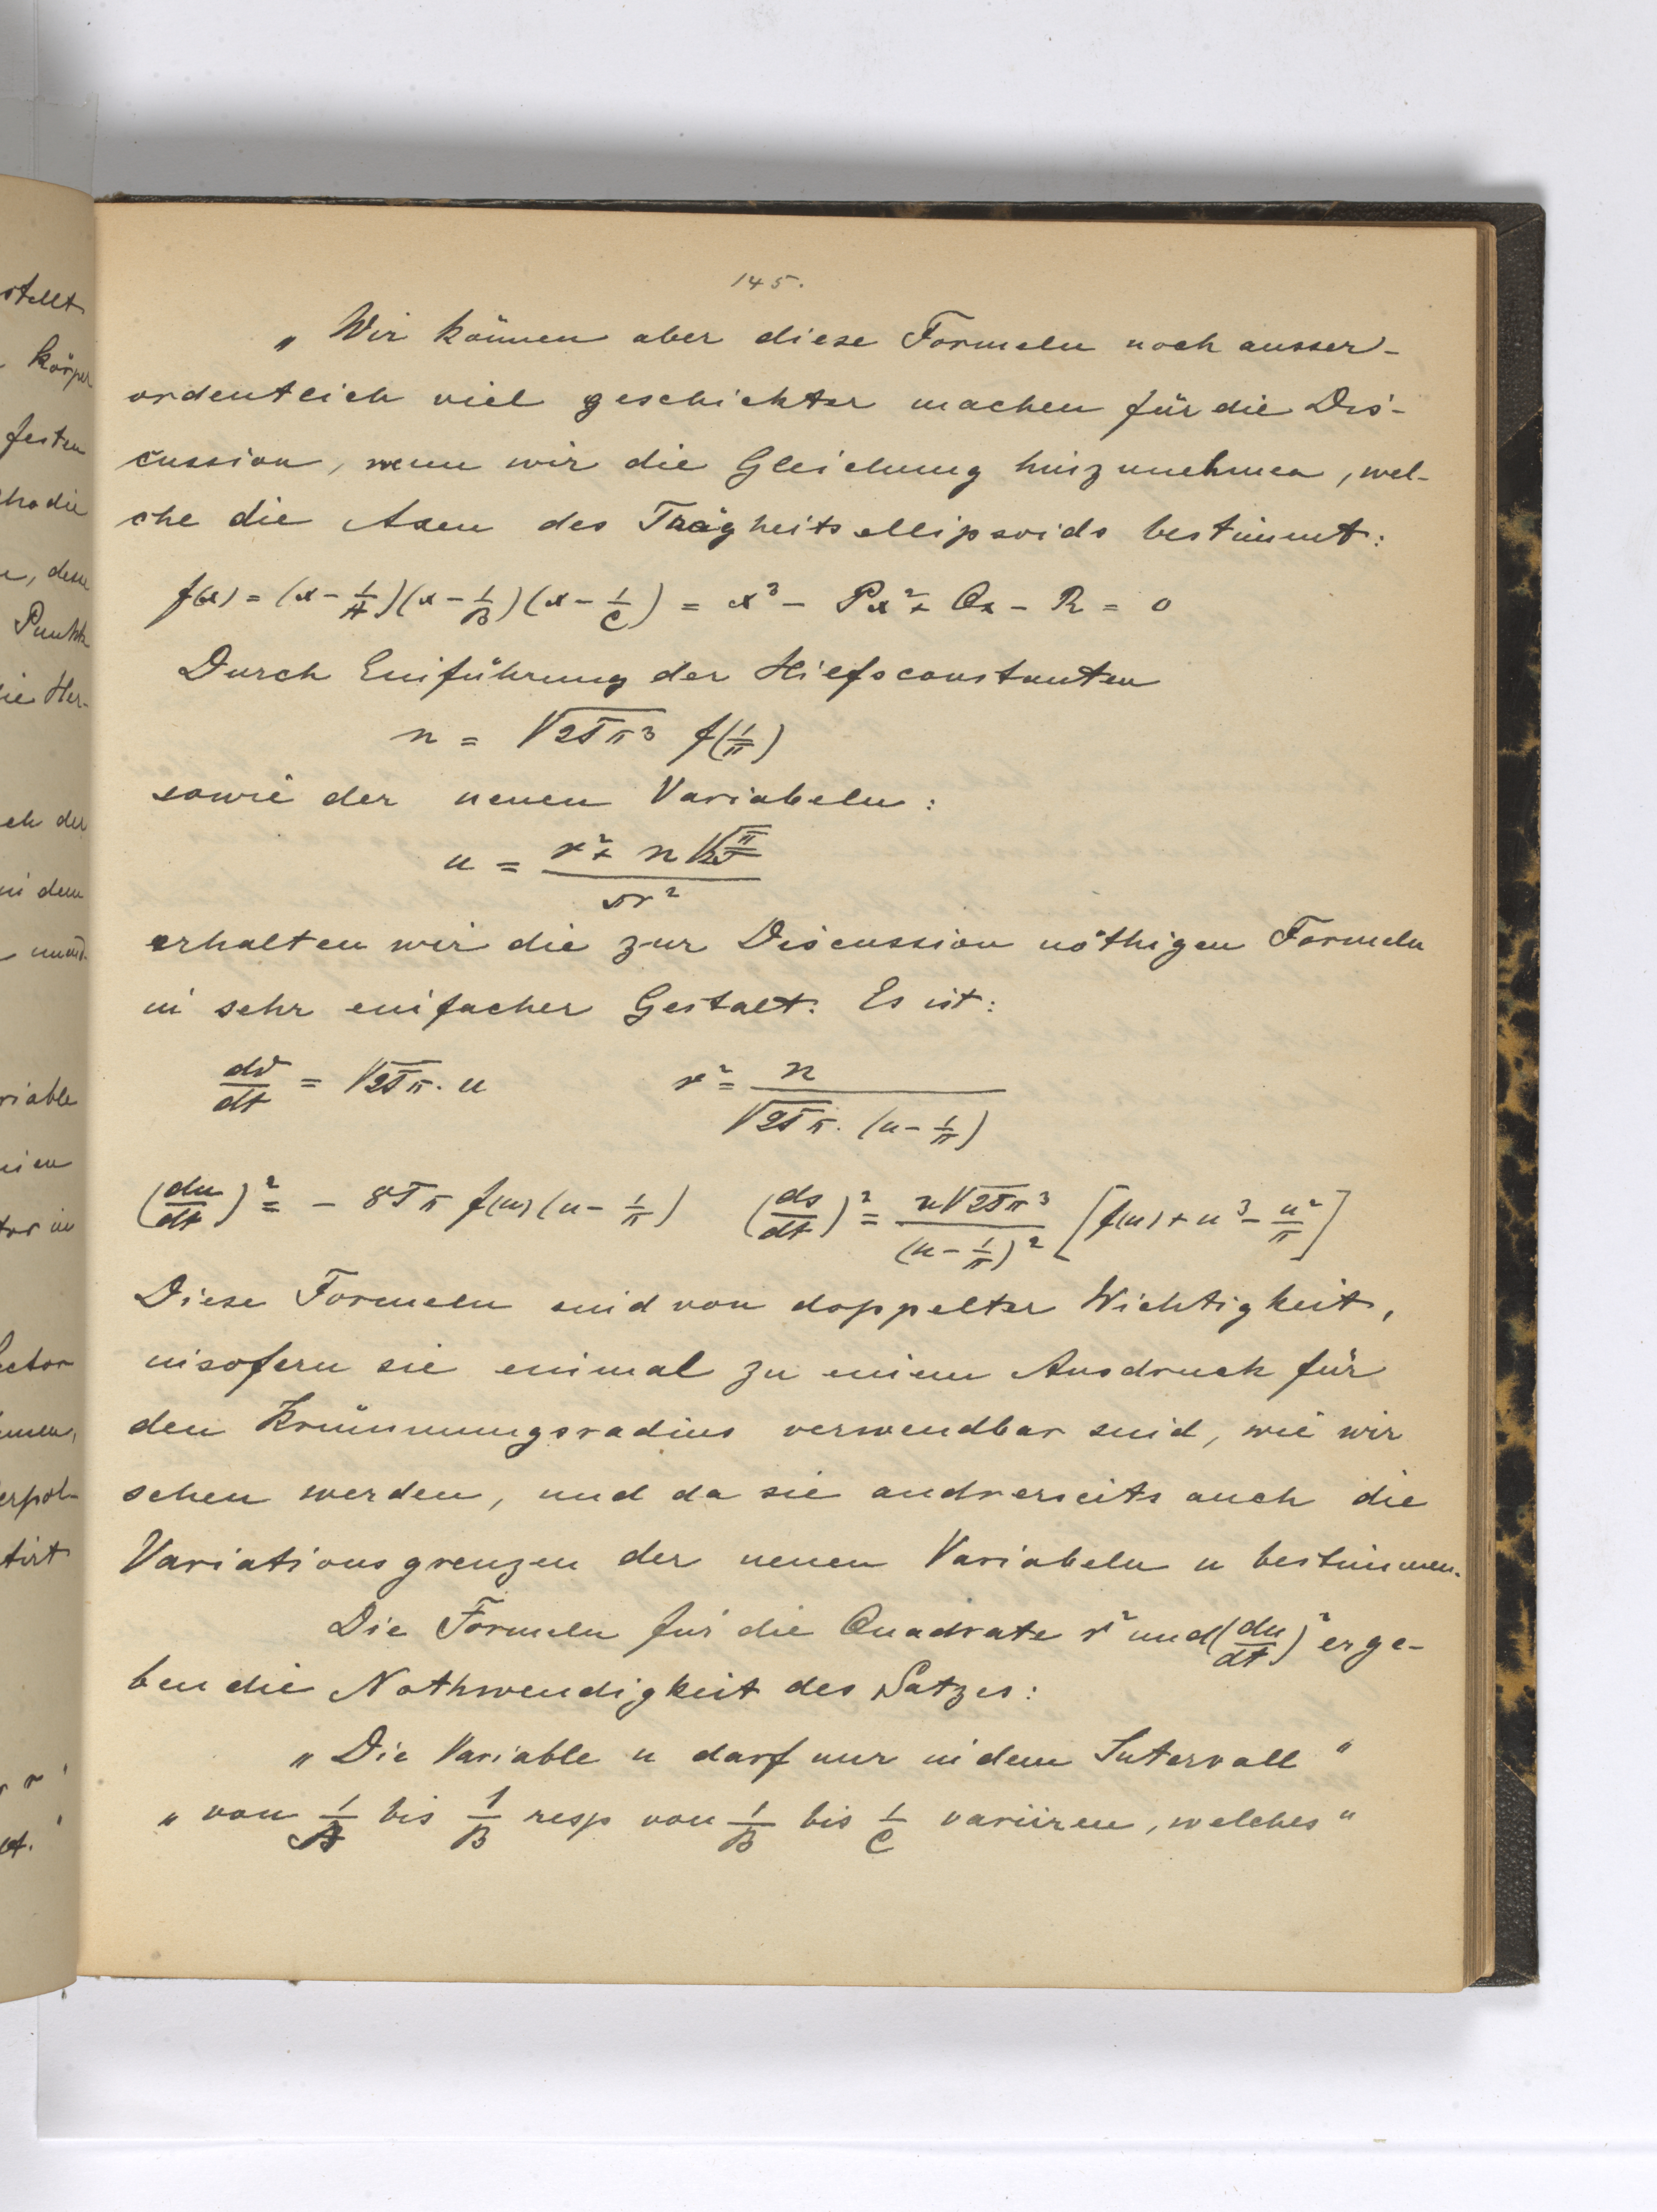 stellt
körper
festen
Punkt
die Her-
ch der
in dem
riable
145.
„ Wir können aber diese Formeln noch ausser-
ordentlich viel geschickter machen für die Dis-
cussion, wenn wir die Gleichung hinzunehmen, wel-
che die Axen des Trägheitsellipsoids bestimmt:
f(x) = (x - 1/A)(x - 1/B)(x - 1/C) = x³ - Px² + Qx - R = 0
Durch Einführung der Hilfsconstanten
n = √2Tπ³ f(1/π)
sowie der neuen Variabeln:
u = (r² + n√(π/2T)) / πr²
erhalten wir die zur Discussion nöthigen Formeln
in sehr einfacher Gestalt. Es ist:
dϑ/dt = √2Tπ · u    r² = n / (√2Tπ · (u - 1/π))
(du/dt)² = - 8Tπ f(u) (u - 1/π)    (ds/dt)² = n√2Tπ³ / (u - 1/π)² [f(u) + u³ - u²/π]
Diese Formeln sind von doppelter Wichtigkeit,
insofern sie einmal zu einem Ausdruck für
den Krümmungsradius verwendbar sind, wie wir
sehen werden, und da sie andrerseits auch die
Variationsgrenzen der neuen Variabeln u bestimmen.
Die Formeln für die Quadrate r² und (du/dt)² erge-
ben die Nothwendigkeit des Satzes:
„ Die Variable u darf nur in dem Intervall “
„ von 1/A bis 1/B resp von 1/B bis 1/C variiren, welches “